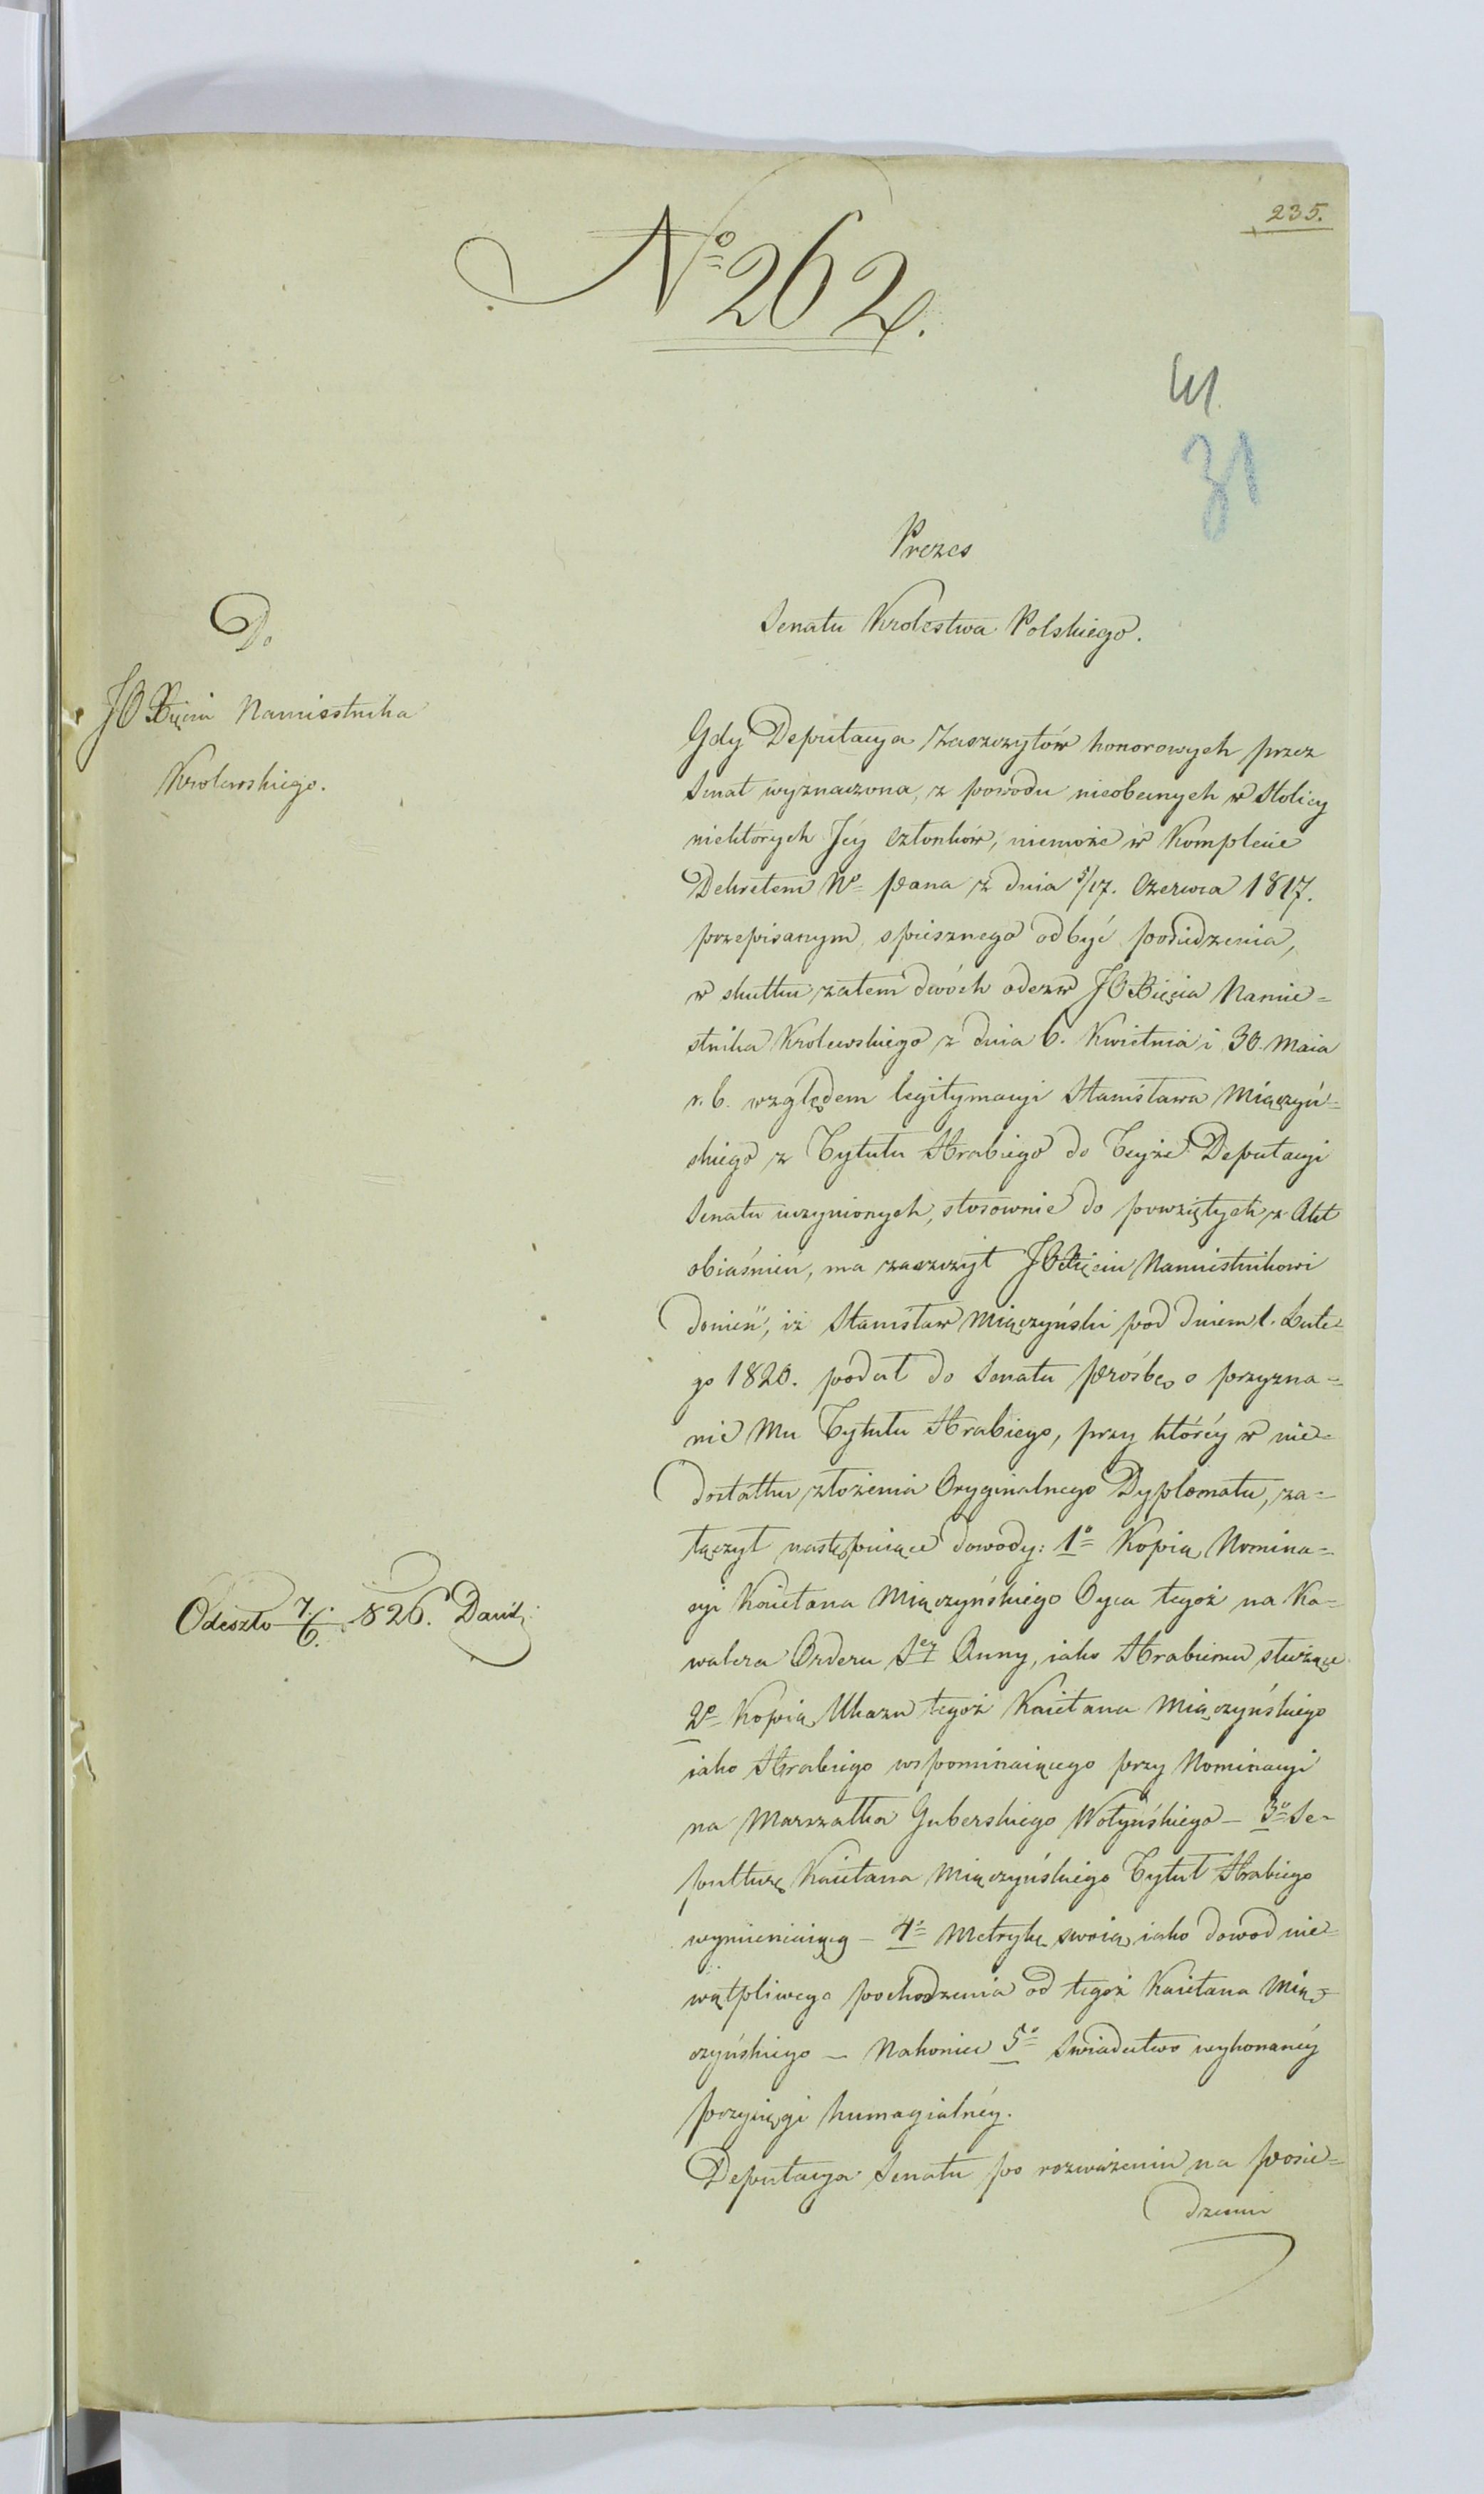 235.
Nº 262.
41.
31
Prezes
Senatu Krolestwa Polskiego.
Do
JO Xięcia Namiestnika
Krolewskiego.
Gdy Deputacya Zaszczytów honorowych przez
Senat wyznaczona, z powodu nieobecnych w Stolicy
niektórych Jéy Członków, niemoże w Komplecie
Dekretem Nº Pana z dnia 5/17. Czerwca 1817.
przepisanym, spiesznego odbyć posiedzenia,
w skutku zatem dwóch odezw JO Xięcia Namie=
stnika Krolewskiego z dnia 6. Kwietnia i 30. Maia
r. b. względem legitymacyi Stanisława Miączyń=
skiego z Tytułu Hrabiego do Teyże Deputacyi
Senatu uczynionych, stosownie do powziętych z Akt
obiaśnień, ma zaszczyt JO Xięciu Namiestnikowi
donieść, iż Stanisław Miączyński pod dniem 1. Lute=
go 1820. podał do Senatu prośbę o przyzna=
nie Mu Tytułu Hrabiego, przy któréy w nie=
dostatku złożenia Oryginalnego Dyplomatu, za=
łączył następuiące dowody: 1º Kopią Nomina=
cyi Kaietana Miączyńskiego Oyca tegoż na Ka=
walera Orderu Sej Anny, iako Hrabiemu służące
2º Kopią Ukazu tegoż Kaietana Miączyńskiego
iako Hrabiego wspominaiącego przy Nominacyi
na Marszałka Guberskiego Wołyńskiego – 3º Se=
pulturę Kaietana Miączyńskiego Tytuł Hrabiego
wymieniaiącą – 4º Metrykę swoią iako dowod nie=
wątpliwego pochodzenia od tegoż Kaietana Mią=
czyńskiego – Nakoniec 5º Swiadectwo wykonanéy
przysięgi humagialnéy.
Deputacya Senatu po rozważeniu na posie=
dzeniu
Odeszło 7/6. 826.